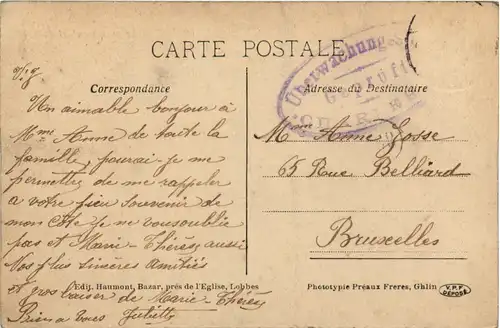 CARTE POSTALE
Überwachungs
Geprüft
V.g.
Correspondance
Adresse du Destinataire
Un aimable bonjour à
Mme Anne de toute la
famille, pourai-je me
permettre de me rappeler
a votre souvenir de
mon Coté je ne vousoublie
pas et Marie-Thérèse aussi
Nos plus sincères amitiés
et gros baiser de Marie-Thérèse
Bien a vous Juliette
Mme Anne Josse
65 Rue Belliard
Bruxelles
Edij. Haumont, Bazar, près de l'Eglise, Lobbes
Phototypie Préaux Freres, Ghlin
P.P.F.
DÉPOSÉ